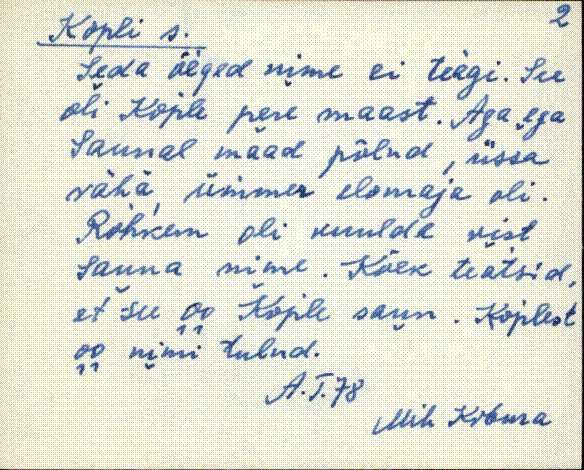 2
Kopli s.
Seda õeged nime ei teägi. See
oli Kople pere maast. Aga ega
Saunal maad põlnd, üssa
vähä ümmer elomaja oli.
Rohkem oli kuulda vist
Sauna nime. Kõek teätsid,
et see oo Kople saun. Koplest
oo nimi tulnd.
A.T.78